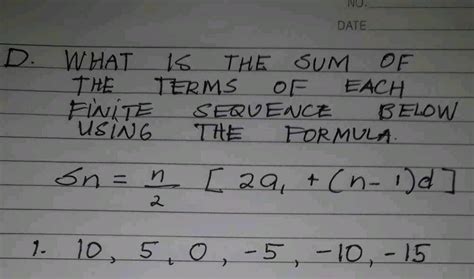 NO.
DATE
D. WHAT IS THE SUM OF
THE TERMS OF EACH
FINITE SEQUENCE BELOW
USING THE FORMULA.
Sn = n/2 [2a₁ + (n-1)d]
1. 10, 5, 0, -5, -10, -15